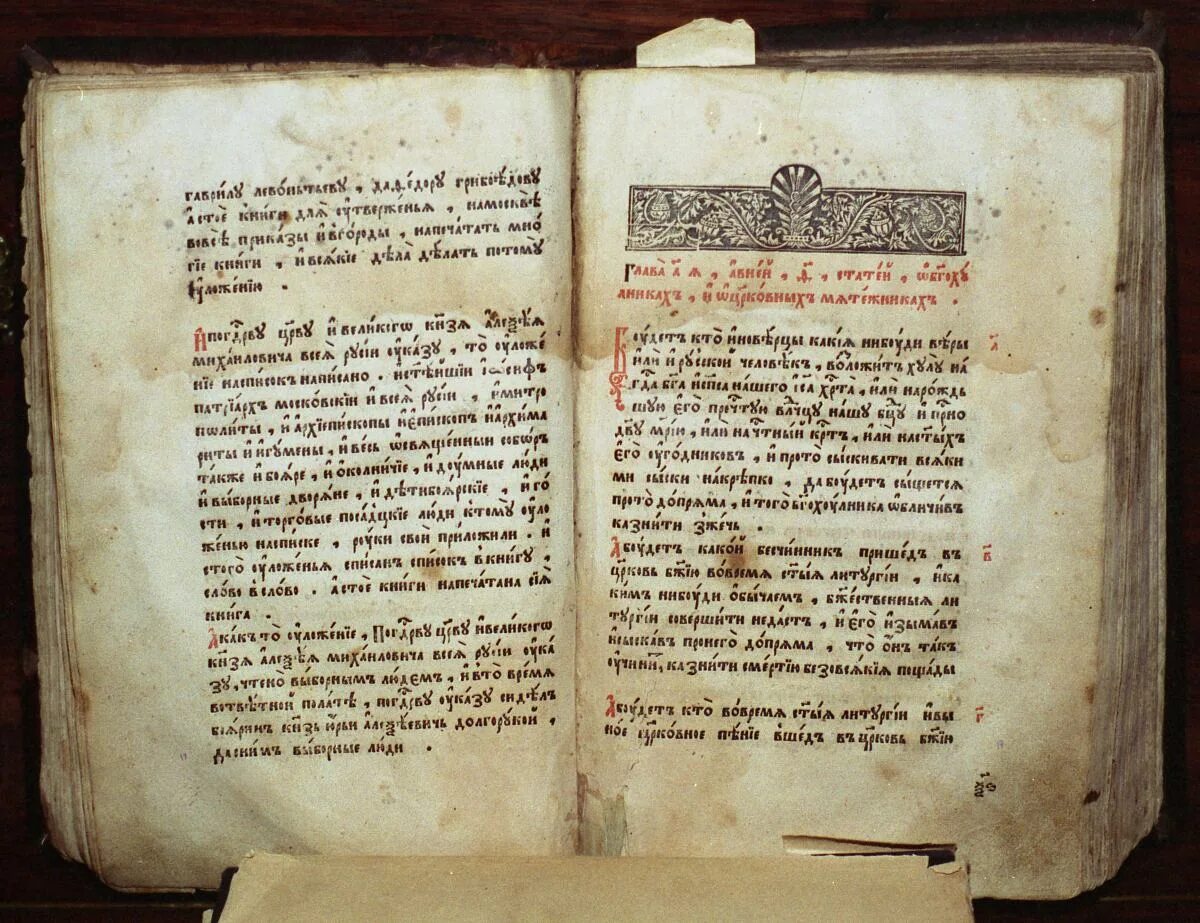 гаври́лу лево́нтьеву , даѳе́дору грибоѣ́дову
а стоѐ кни́ги для̀ ѹ҆тверже́нья , намосквѣ̀
вовсѣ̀ прика́зы и҆вго́роды , напеча́тать мно́
гїе кни́ги , и҆ вся́кїе дѣла̀ дѣ́лать потомꙋ̀
ѹ҆ложе́нїю .
И҆ погдⷭ҇рву цр҃ву и҆вели́кигѡ кн҃зя а҆леѯѣ́я
миха́иловича всея̀ рꙋсі́и ѹ҆ка́зу , то̀ ѹ҆ложе́
нїе наспи́сокъ напи́сано . и҆ст҃ѣ́йшїи і҆ѡ́сифъ
патрїа́рхъ моско́вскїи и҆ всея̀ рꙋсі́и , и҆митро
поли́ты , и҆ а҆рхїепи́скопы и҆ е҆пи́скопъ и҆ а҆рхима
ри́ты и҆ и҆гу́мены , и҆ ве́сь ѡ҆свяще́нныи собо́ръ
та́кже и҆ боя́ре , и҆ ѻ҆ко́лничїе , и҆ дꙋ́мные лю́ди
и҆ вы́борные дворя́не , и҆ дѣ́тибоя́рскїе , и҆ го́
сти , и҆ торго́вые поса́дцкїе лю́ди к̾то́му ѹ҆ло
же́нью наспи́ске , рꙋ́ки свои̇̀ приложи́ли . и҆
стогѡ̀ ѹ҆ложе́нья спи́санъ спи́сокъ в̾кни́гу ,
сло́во в̾ сло́во . а҆стоѐ кни́ги напеча́тана сїѧ̀
кни́га .
А҆ ка́къ то̀ ѹ҆ложе́нїе , погдⷭ҇рву цр҃ву и҆вели́когѡ
кн҃зя а҆леѯѣ́я миха́иловича всея̀ рꙋсі́и ѹ҆ка́
зу , чтено̀ вы́борнымъ лю́демъ , и҆ в̾то̀ вре́мя
вотвѣ́тной пола́тѣ , погдⷭ҇рву ѹ҆ка́зу сидѣ́лъ
боя́ринъ кн҃зь ю҆́рьи а҆леѯѣ́евичь долгорꙋ́кой ,
да сни́мъ вы́борные лю́ди .
Глава̀ а҃ я , а҆ вне́й , ѳ҃ , стате́й , ѡ҆ б҃гохꙋ́
лникахъ , и҆ ѡ҆ цр҃ко́вныхъ мяте́жникахъ .
Бꙋ́детъ кто̀ и҆новѣ́рцы какі́я нибꙋ́ди вѣ́ры
и҆ли̇̀ и҆ рꙋ́сской человѣ́къ , возло́житъ хулꙋ̀ на
гдⷭ҇а бг҃а и҆ сп҃са на́шего і҆с҃а хрⷭ҇та̀ , и҆ли̇̀ наро́ждь
шую е҆го̀ прчⷭ҇тую влⷣчцу на́шу бц҃у и҆ прⷭ҇но
дв҃у мр҃їю , и҆ли̇̀ на чⷭ҇тны́й крⷭ҇тъ , и҆ли̇̀ на ст҃ы́хъ
е҆го̀ ѹ҆го́дниковъ , и҆ прото̀ сы́скивати вся́ки
ми сы́ски накрѣ́пко , да бꙋ́детъ сы́щется
прото̀ до́пряма , и҆ того̀ б҃гохꙋ́лника ѡ҆бличи́въ
казни́ти зже́чь .
А҆ бꙋ́детъ како́й безчи́нникъ прише́дъ въ
цр҃ковь бж҃їю во́время ст҃ы́я литургі́и , и҆ ка
ки́мъ нибꙋ́ди ѻ҆бы́чаемъ , бж҃е́ственныя ли
тургі́и соверши́ти неда́стъ , и҆ е҆го̀ и҆зыма́въ
и҆ сыска́въ про него̀ до́пряма , что̀ ѻ҆́нъ та́къ
ѹ҆чини́тъ , казни́ти сме́ртїю безовся́кїя поща́ды
А҆ бꙋ́детъ кто̀ во́время ст҃ы́я литургі́и и҆ вы
но́е цр҃ко́вное пѣ́нїе вше́дъ въ цр҃ковь бж҃їю
а҃
в҃
г҃